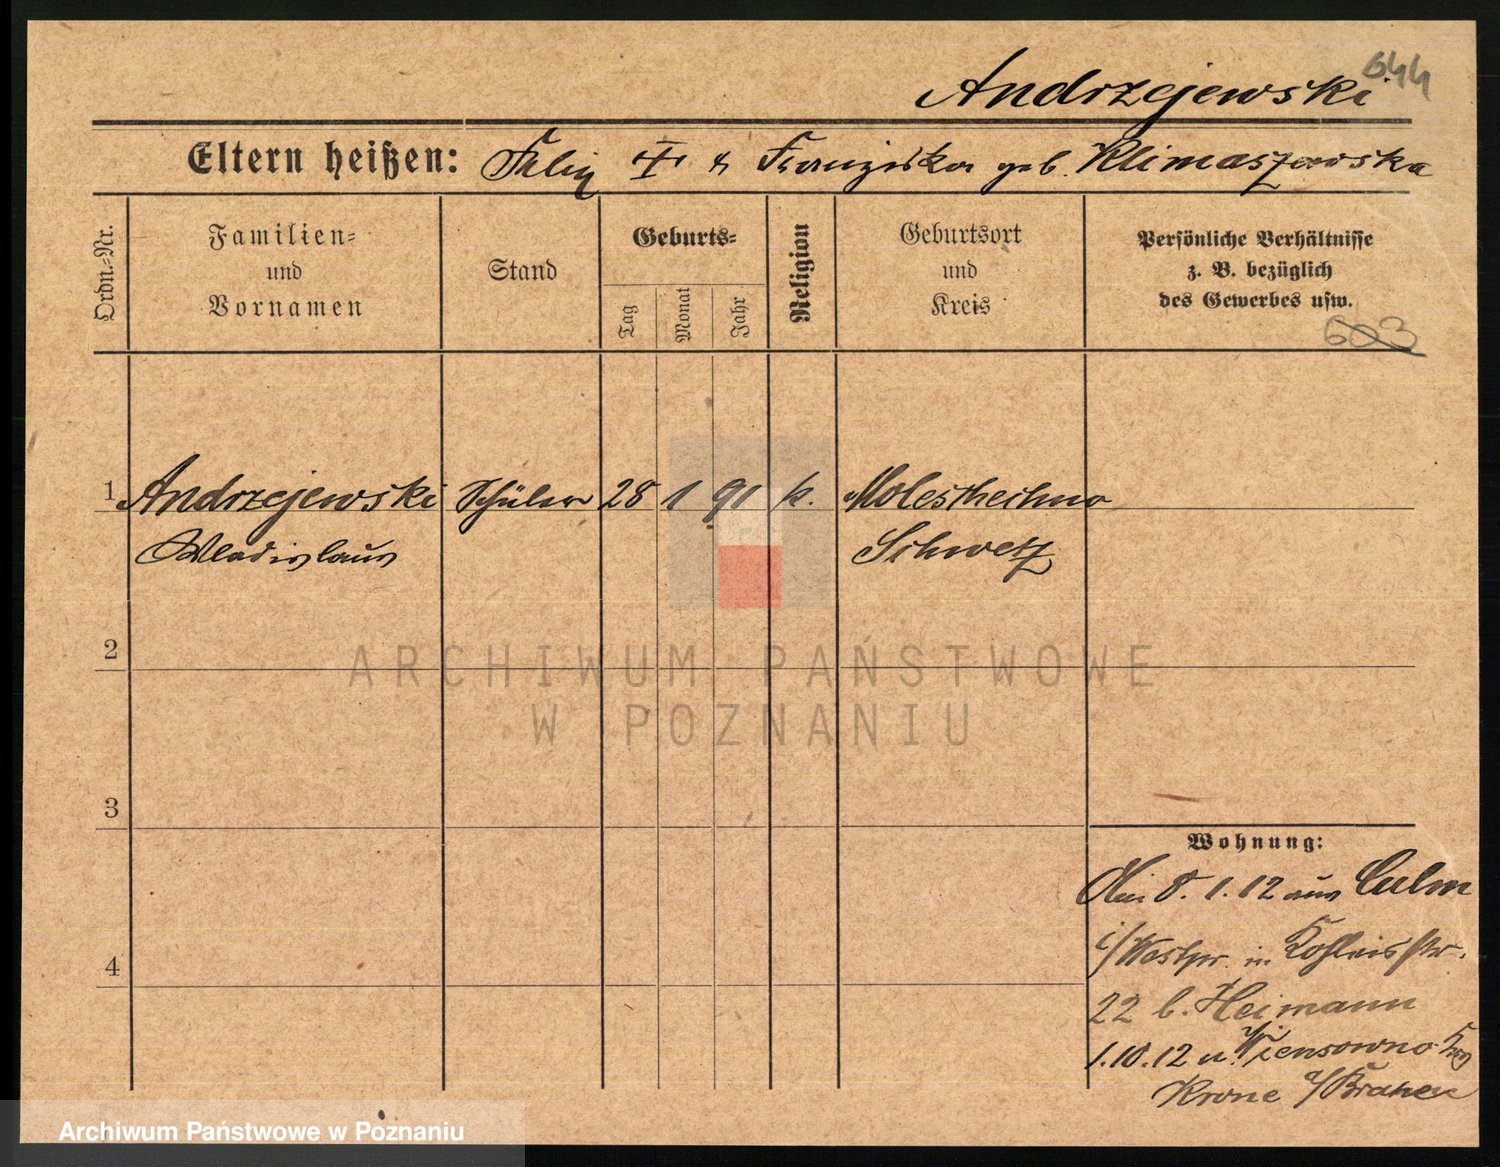 644
Andrzejewski
Eltern heißen: Felix † & Franziska geb. Klimaszewska
Ordn.=Nr.
Familien=
und
Vornamen
Stand
Geburts=
Tag
Monat
Jahr
Religion
Geburtsort
und
Kreis
Persönliche Verhältnisse
z. B. bezüglich
des Gewerbes usw.
603
1 Andrzejewski Schüler 28 1 91 k.
Wladislaus Schwetz
2
ARCHIWUM PAŃSTWOWE
W POZNANIU
3
Wohnung:
8.1.12 aus Culm
i/Westpr. in
4
22 b. Heimann
1.10.12 n.
Krone a/Brahe
Archiwum Państwowe w Poznaniu